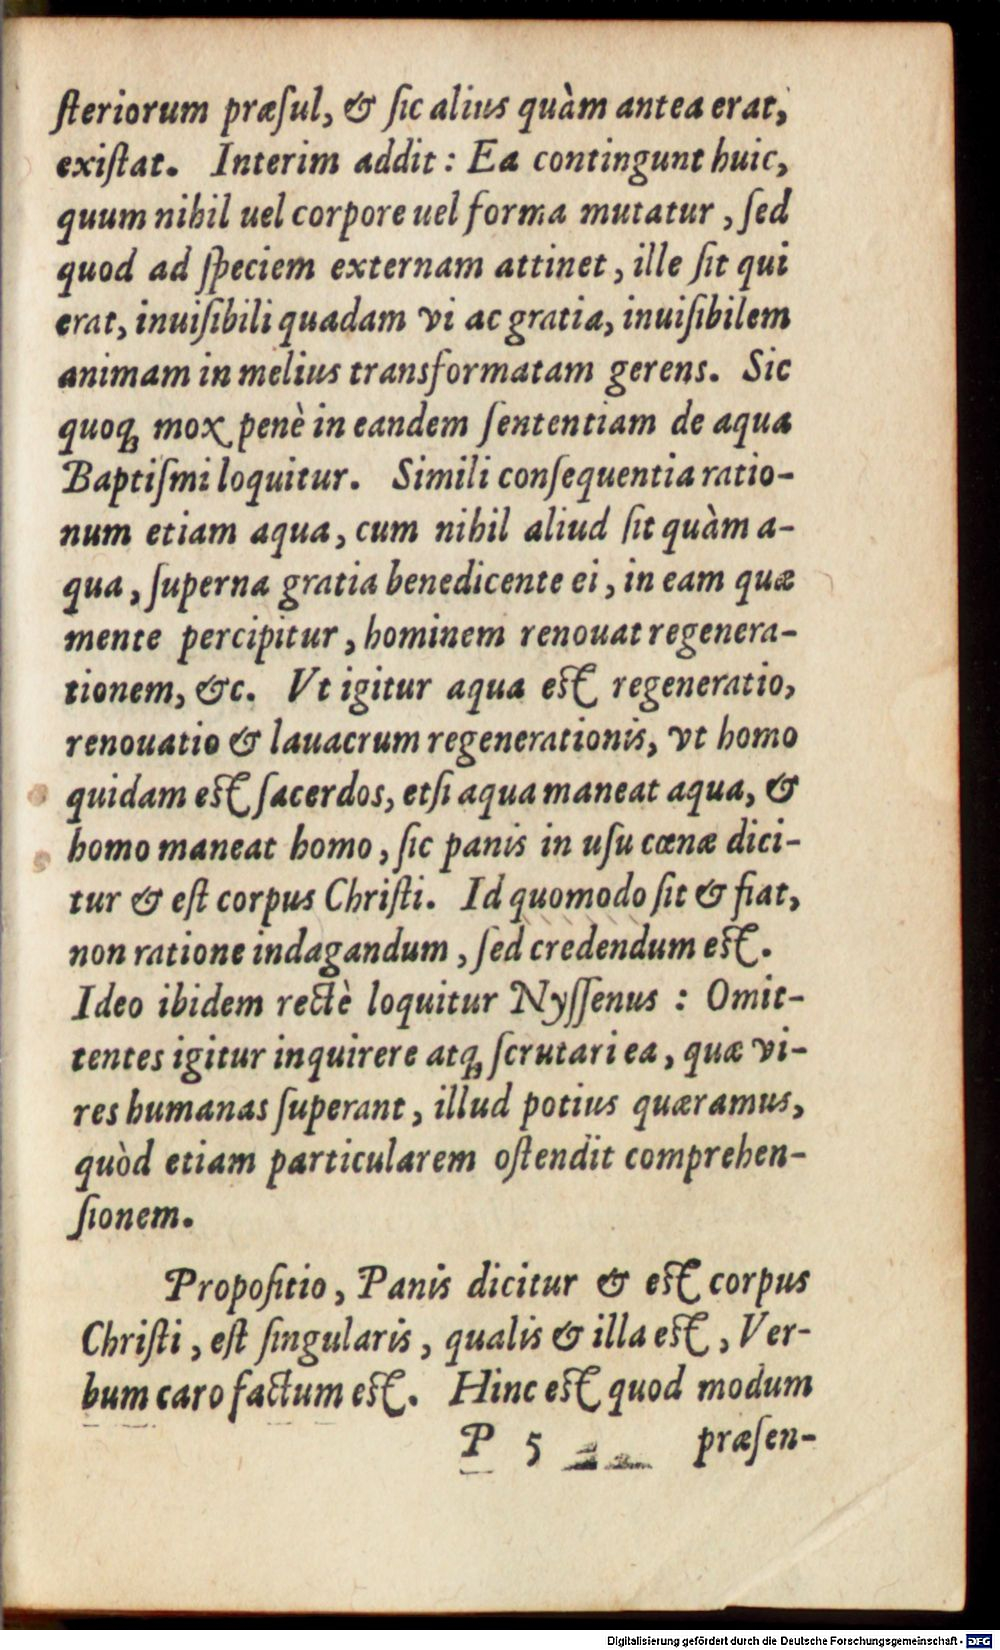 ſteriorum præſul, & ſic alius quàm antea erat,
exiſtat. Interim addit: Ea contingunt huic,
quum nihil uel corpore uel forma mutatur, ſed
quod ad ſpeciem externam attinet, ille ſit qui
erat, inuiſibili quadam vi ac gratia, inuiſibilem
animam in melius transformatam gerens. Sic
quoqꝫ mox penè in eandem ſententiam de aqua
Baptiſmi loquitur. Simili conſequentia ratio-
num etiam aqua, cum nihil aliud ſit quàm a-
qua, ſuperna gratia benedicente ei, in eam quæ
mente percipitur, hominem renouat regenera-
tionem, &c. Vt igitur aqua eſt regeneratio,
renouatio & lauacrum regenerationis, vt homo
quidam eſt ſacerdos, etſi aqua maneat aqua, &
homo maneat homo, ſic panis in uſu cœnæ dici-
tur & eſt corpus Chriſti. Id quomodo ſit & fiat,
non ratione indagandum, ſed credendum eſt.
Ideo ibidem rectè loquitur Nyſſenus: Omit-
tentes igitur inquirere atqꝫ ſcrutari ea, quæ vi-
res humanas ſuperant, illud potius quæramus,
quòd etiam particularem oſtendit comprehen-
ſionem.
Propoſitio, Panis dicitur & eſt corpus
Chriſti, eſt ſingularis, qualis & illa eſt, Ver-
bum caro factum eſt. Hinc eſt quod modum
P 5 præſen-
Digitalisierung gefördert durch die Deutsche Forschungsgemeinschaft - DFG